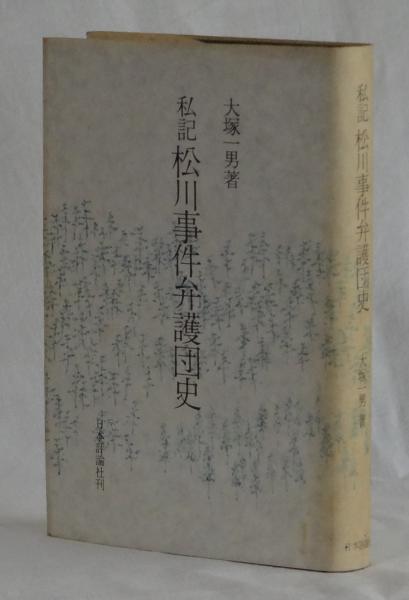 大塚一男著
私記 松川事件弁護団史
日本評論社刊
私記 松川事件弁護団史
大塚一男著